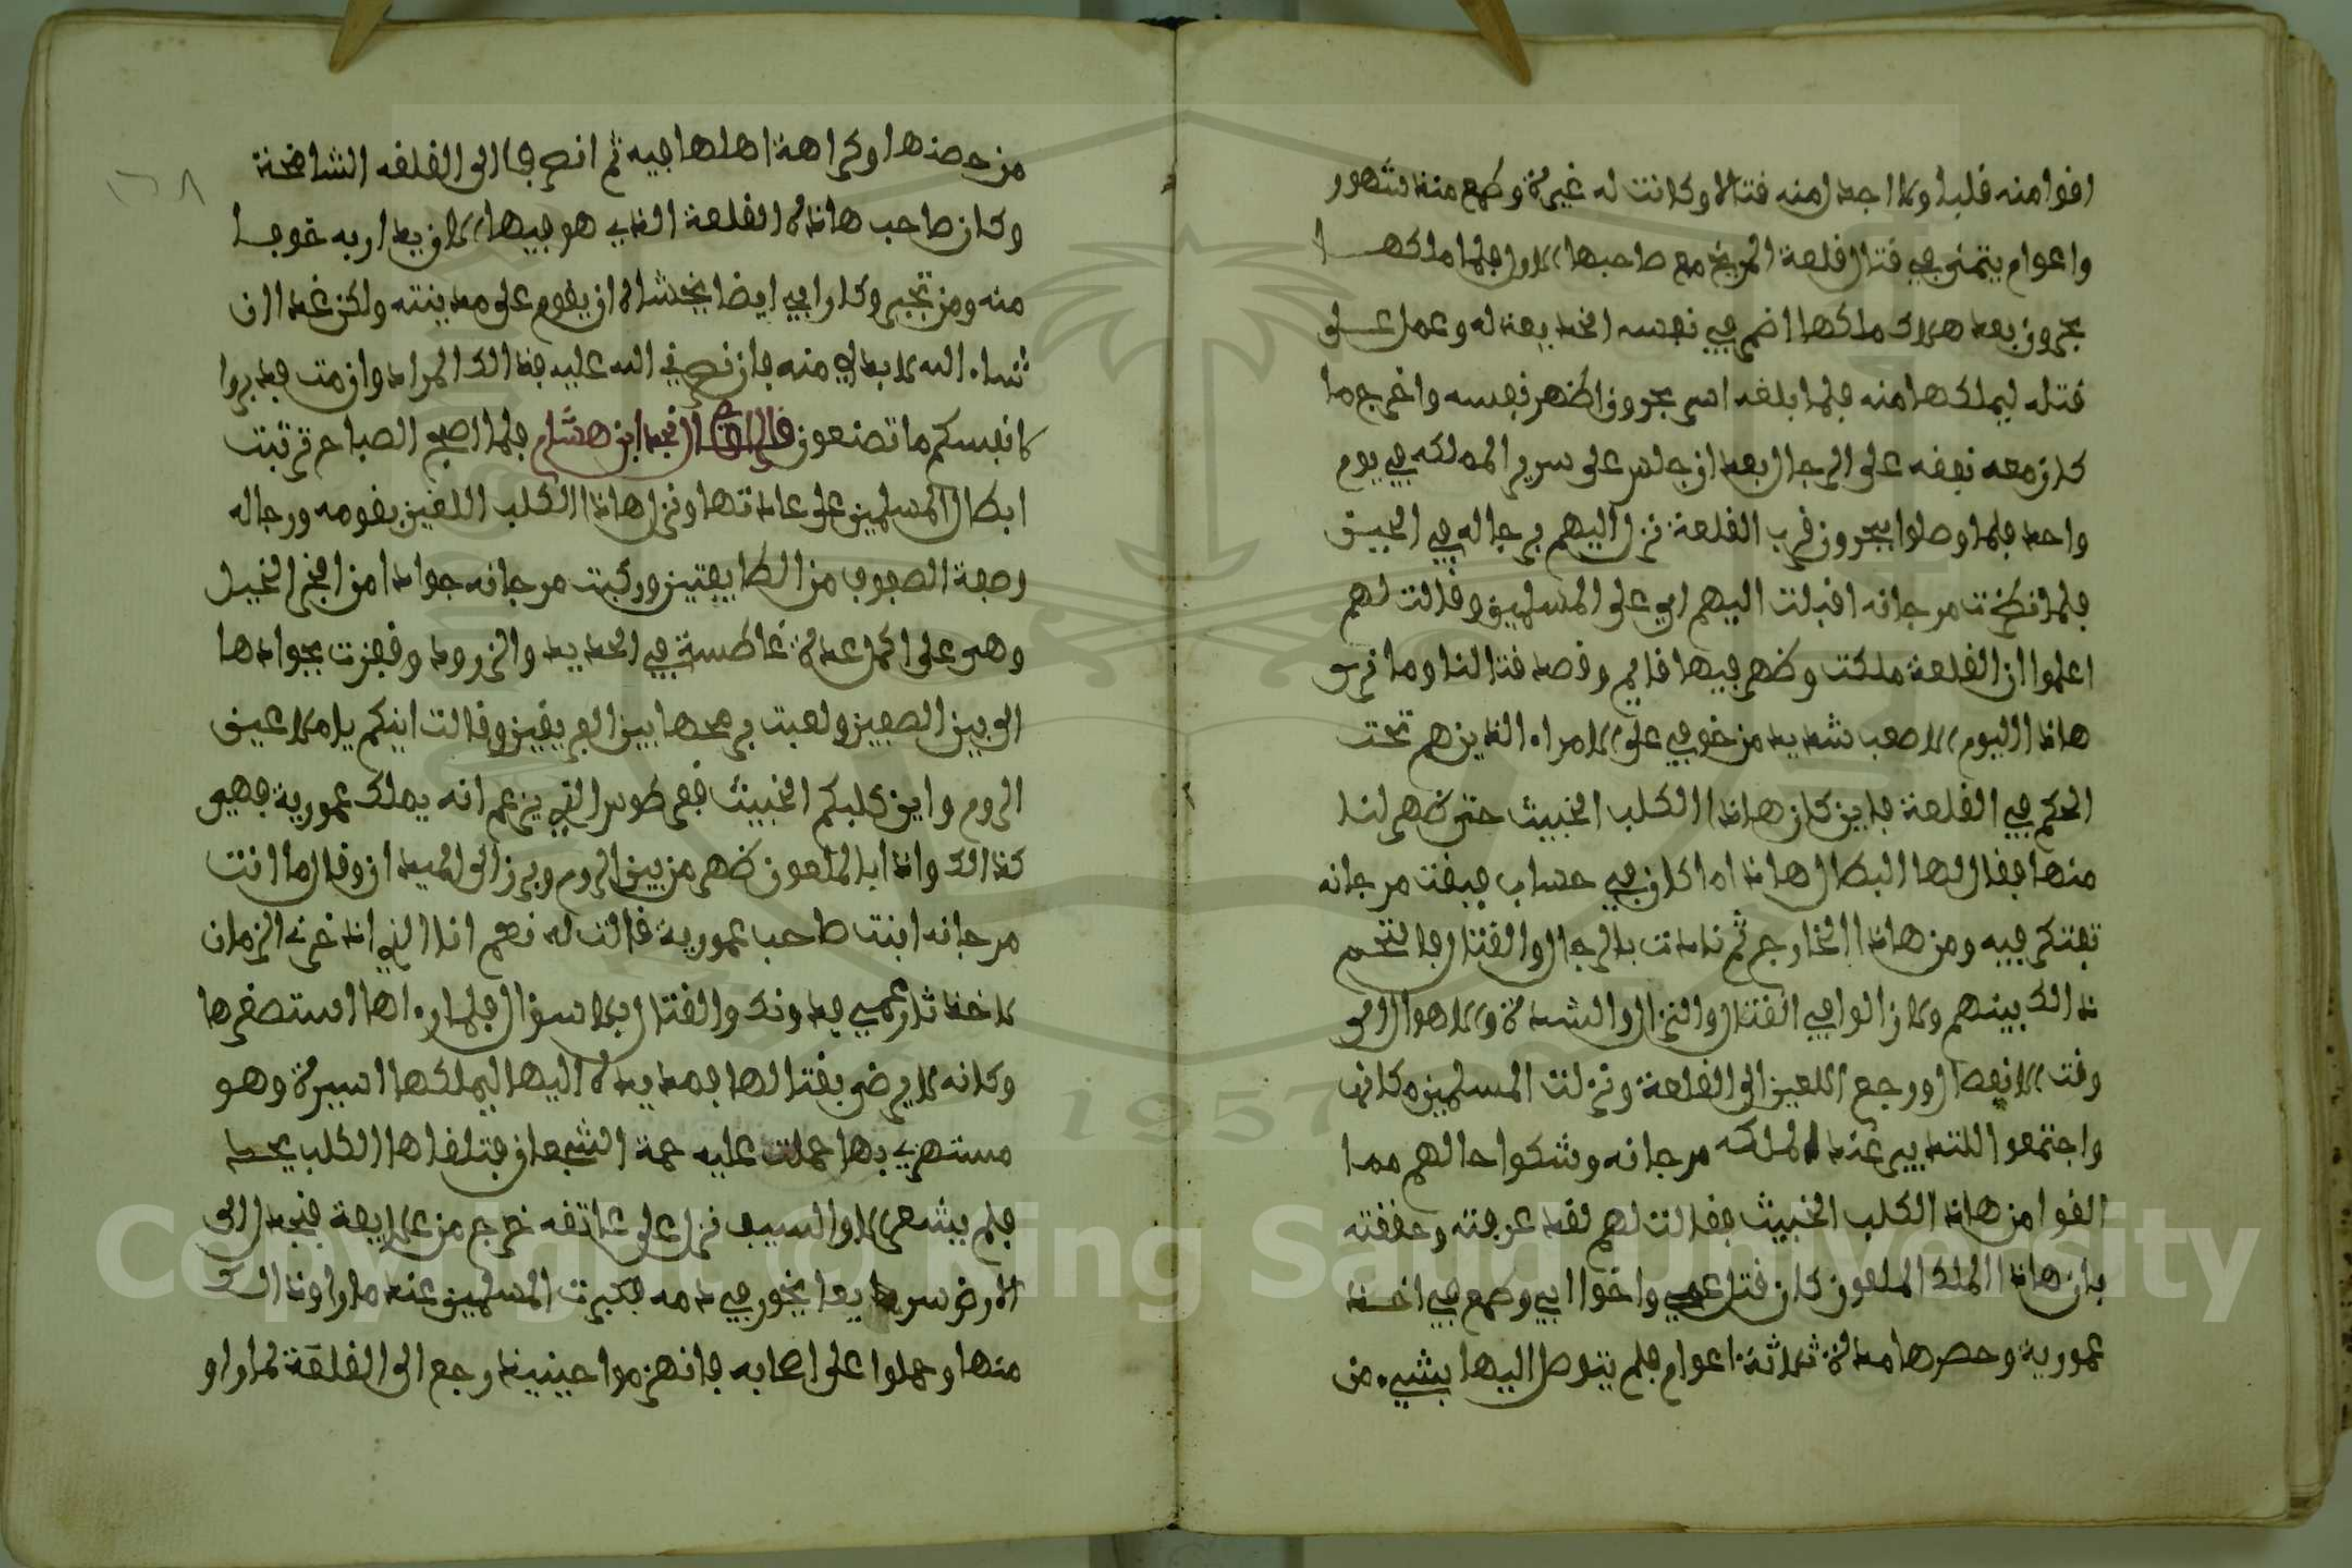 اقوا منه قلبا ولا اجد امنه قتالا وكانت له غيرة وطمع منذ شهور
واعوام يتمنى في قتال قلعة المريخ مع صاحبها الاول فلما ملكها
بحرون بعد هلاك ملكها اضمر في نفسه الخديعة له وعمل على
قتله ليملكها منه فلما بلغه اسر بحرون اظهر نفسه واخرج ما
كان معه نفقه على الرجال بعد ان جلس على سرير المملكه في يوم
واحد فلما وصلوا ببحرون قرب القلعة نزل اليهم برجاله في الجيش
فلما نظرت مرجانه اقبلت اليهم اي على المسلمين وقالت لهم
اعلموا ان القلعة ملكت وظهر فيها قايم وقصد قتالنا وما نرى
هاذا اليوم الا صعب شديد من خوفي على الامراء الذين هم تحت
الحكم في القلعة فاين كان هاذا الكلب الخبيث حتى ظهر لنا
منها فقال لها البطال هاذا ما كان في حساب فبقت مرجانه
تفتكر فيه ومن هاذا الخارج ثم نادت بالرجال والقتال فالتحم
ذالك بينهم ولا زالوا في القتال والنزال والشدة والاهوال الى
وقت الانفصال ورجع اللعين الى القلعة ونزلت المسلمين مكانها
واجتمعوا اللتدبير عند الملكه مرجانه وشكوا حالهم مما
القوا من هاذا الكلب الخبيث فقالت لهم لقد عرفته وحققته
بان هاذا الملك الملعون كان قتل عمي واخوا ابي وطمع في اخذ
عمورية وحصرها مدة ثلاثة اعوام فلم يتوصل اليها بشيء من
١٣٨
من حصنها وكراهة اهلها فيه ثم انصرفا الى القلعه الشامخة
وكان صاحب هاذه القلعة الذي هو فيها الان يداريه خوفا
منه ومن تجبره وكان ابي ايضا يخشاه ان يقوم على مدينته ولكن غدا ان
شاء الله لا بد لي منه فان نصرني الله عليه فذالك المراد وان مت فدبروا
لانفسكم ما تصنعون قال الراوي نجد ابن هشام فلما اصبح الصباح ترتبت
ابطال المسلمين على عادتها ونزل هاذا الكلب اللعين بقومه ورجاله
وصفة الصفوف من الطايفتين وركبت مرجانه جوادا من افخر الخيل
وهي على اكمل عدة غاطسة في الحديد والزرود وقفزت بجوادها
الى بين الصفين ولعبت برمحها بين الفريقين وقالت اينكم يا ملاعين
الروم واين كلبكم الخبيث قعرطوس الذي يزعم انه يملك عمورية فهي
كذالك واذا بالملعون ظهر من بين الروم وبرز الى الميدان وقال ما انت
مرجانه ابنت صاحب عمورية قالت له نعم انا الذي اذخرني الزمان
لاخذ ثار عمي فدونك والقتال بلا سؤال فلما راها استصغرها
وكانه لا يرضى بقتالها فمد يده اليها ليملكها اسيرة وهو
مستهزي بها حملت عليه حمة الشجعان فتلقاها الكلب بحد
فلم يشعر الا والسيف نزل على عاتقه خرج من علايقة فنجدل الى
الارض سريعا يخور في دمه فكبرت المسلمين عند ما راو ذالك
منها وحملوا على اصحابه فانهزموا حينيذ ورجع الى القلعة لما راو